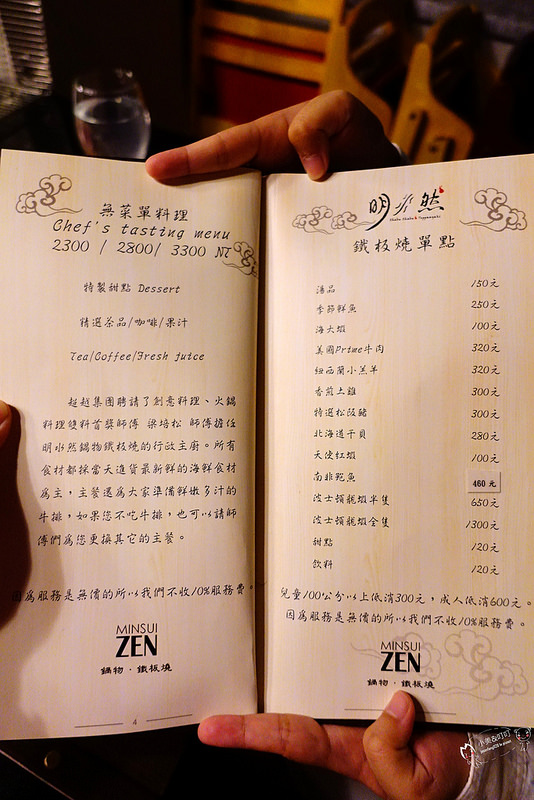 無菜單料理
Chef's tasting menu
2300 / 2800/ 3300 NT
特製甜點 Dessert
精選茶品/咖啡/果汁
Tea/Coffee/Fresh juice
超越集團聘請了創意料理、火鍋
料理雙料首獎師傅 梁培松 師傅擔任
明水然鍋物鐵板燒的行政主廚。所有
食材都採當天進貨最新鮮的海鮮食材
為主,主餐還為大家準備鮮嫩多汁的
牛排,如果您不吃牛排,也可以請師
傅們為您更換其它的主餐。
因為服務是無價的所以我們不收10%服務費。
MINSUI
ZEN
鍋物·鐵板燒
4
明水然
Shabu Shabu & Teppanyaki
鐵板燒單點
湯品 150元
季節鮮魚 250元
海大蝦 100元
美國Prime牛肉 320元
紐西蘭小羔羊 320元
香煎土雞 300元
特選松阪豬 300元
北海道干貝 280元
天使紅蝦 100元
南非鮑魚 460元
波士頓龍蝦半隻 650元
波士頓龍蝦全隻 1300元
甜點 120元
飲料 120元
兒童100公分以上低消300元,成人低消600元。
因為服務是無價的所以我們不收10%服務費。
MINSUI
ZEN
鍋物·鐵板燒